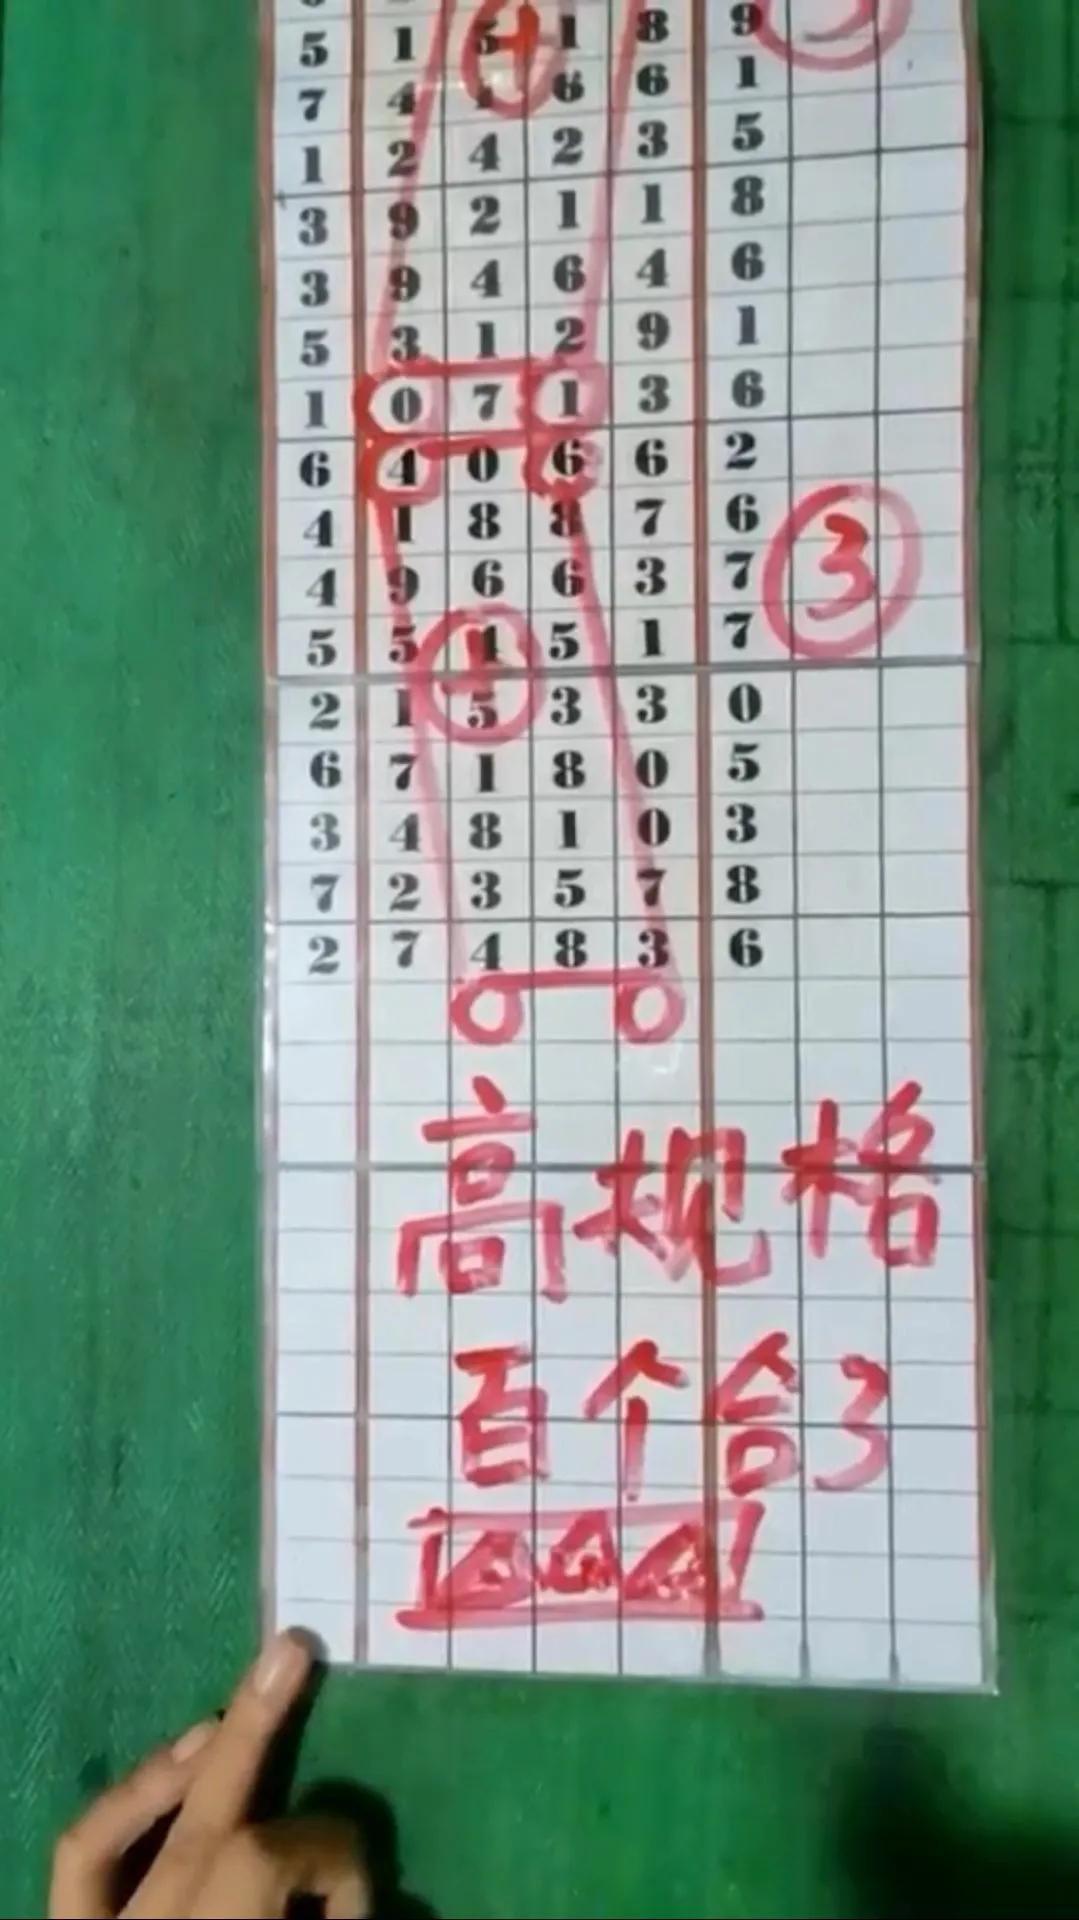 5 1 5 1 8 9
7 4 1 6 6 1
1 2 4 2 3 5
3 9 2 1 1 8
3 9 4 6 4 6
5 3 1 2 9 1
1 0 7 1 3 6
6 4 0 6 6 2
4 1 8 8 7 6
4 9 6 6 3 7 3
5 5 1 5 1 7
2 1 5 3 3 0
6 7 1 8 0 5
3 4 8 1 0 3
7 2 3 5 7 8
2 7 4 8 3 6
高规格
百个合3